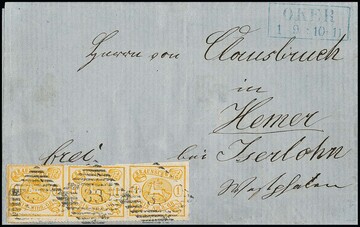 OKER
1 9 · 10-11
Herrn von Clausbruch
in
Hemer
frei bei Iserlohn
Westphalen